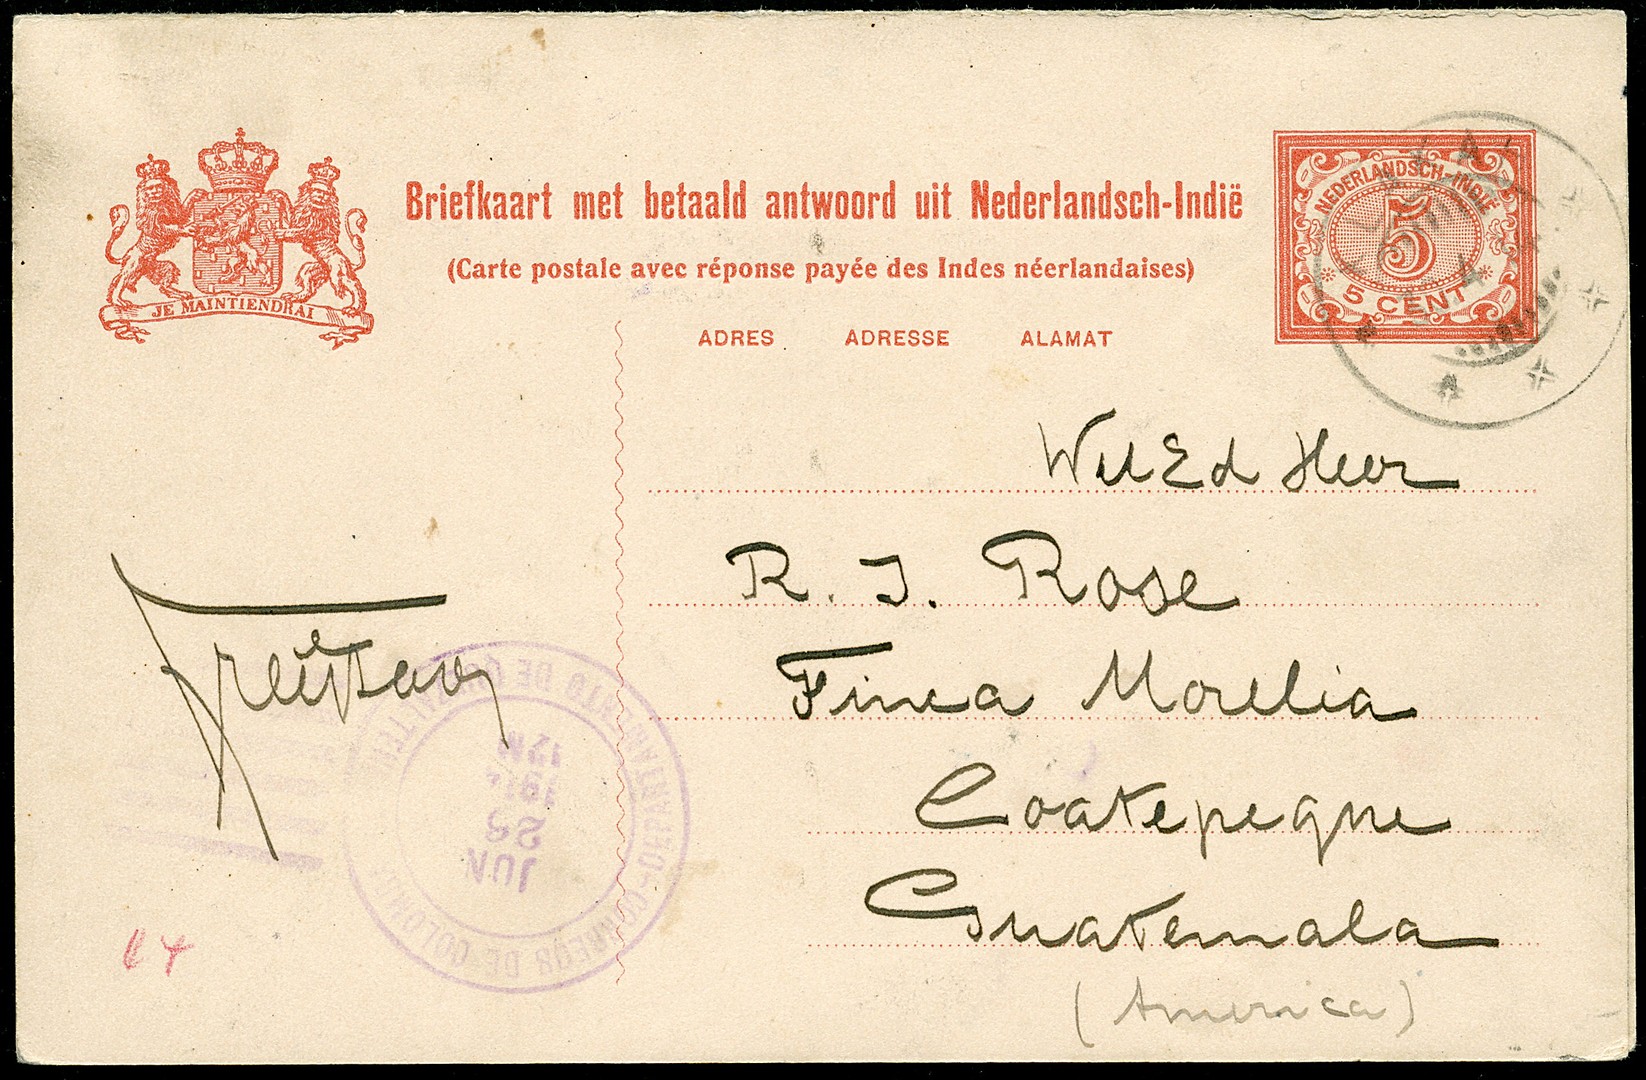 JE MAINTIENDRAI
Briefkaart met betaald antwoord uit Nederlandsch-Indië
(Carte postale avec réponse payée des Indes néerlandaises)
NEDERLANDSCH-INDIË
5
5 CENT
ADRES ADRESSE ALAMAT
Wel Ed Heer
R. J. Rose
Finca Morelia
Coatepeque
Guatemala
(America)
JUN
23
1914
12 M